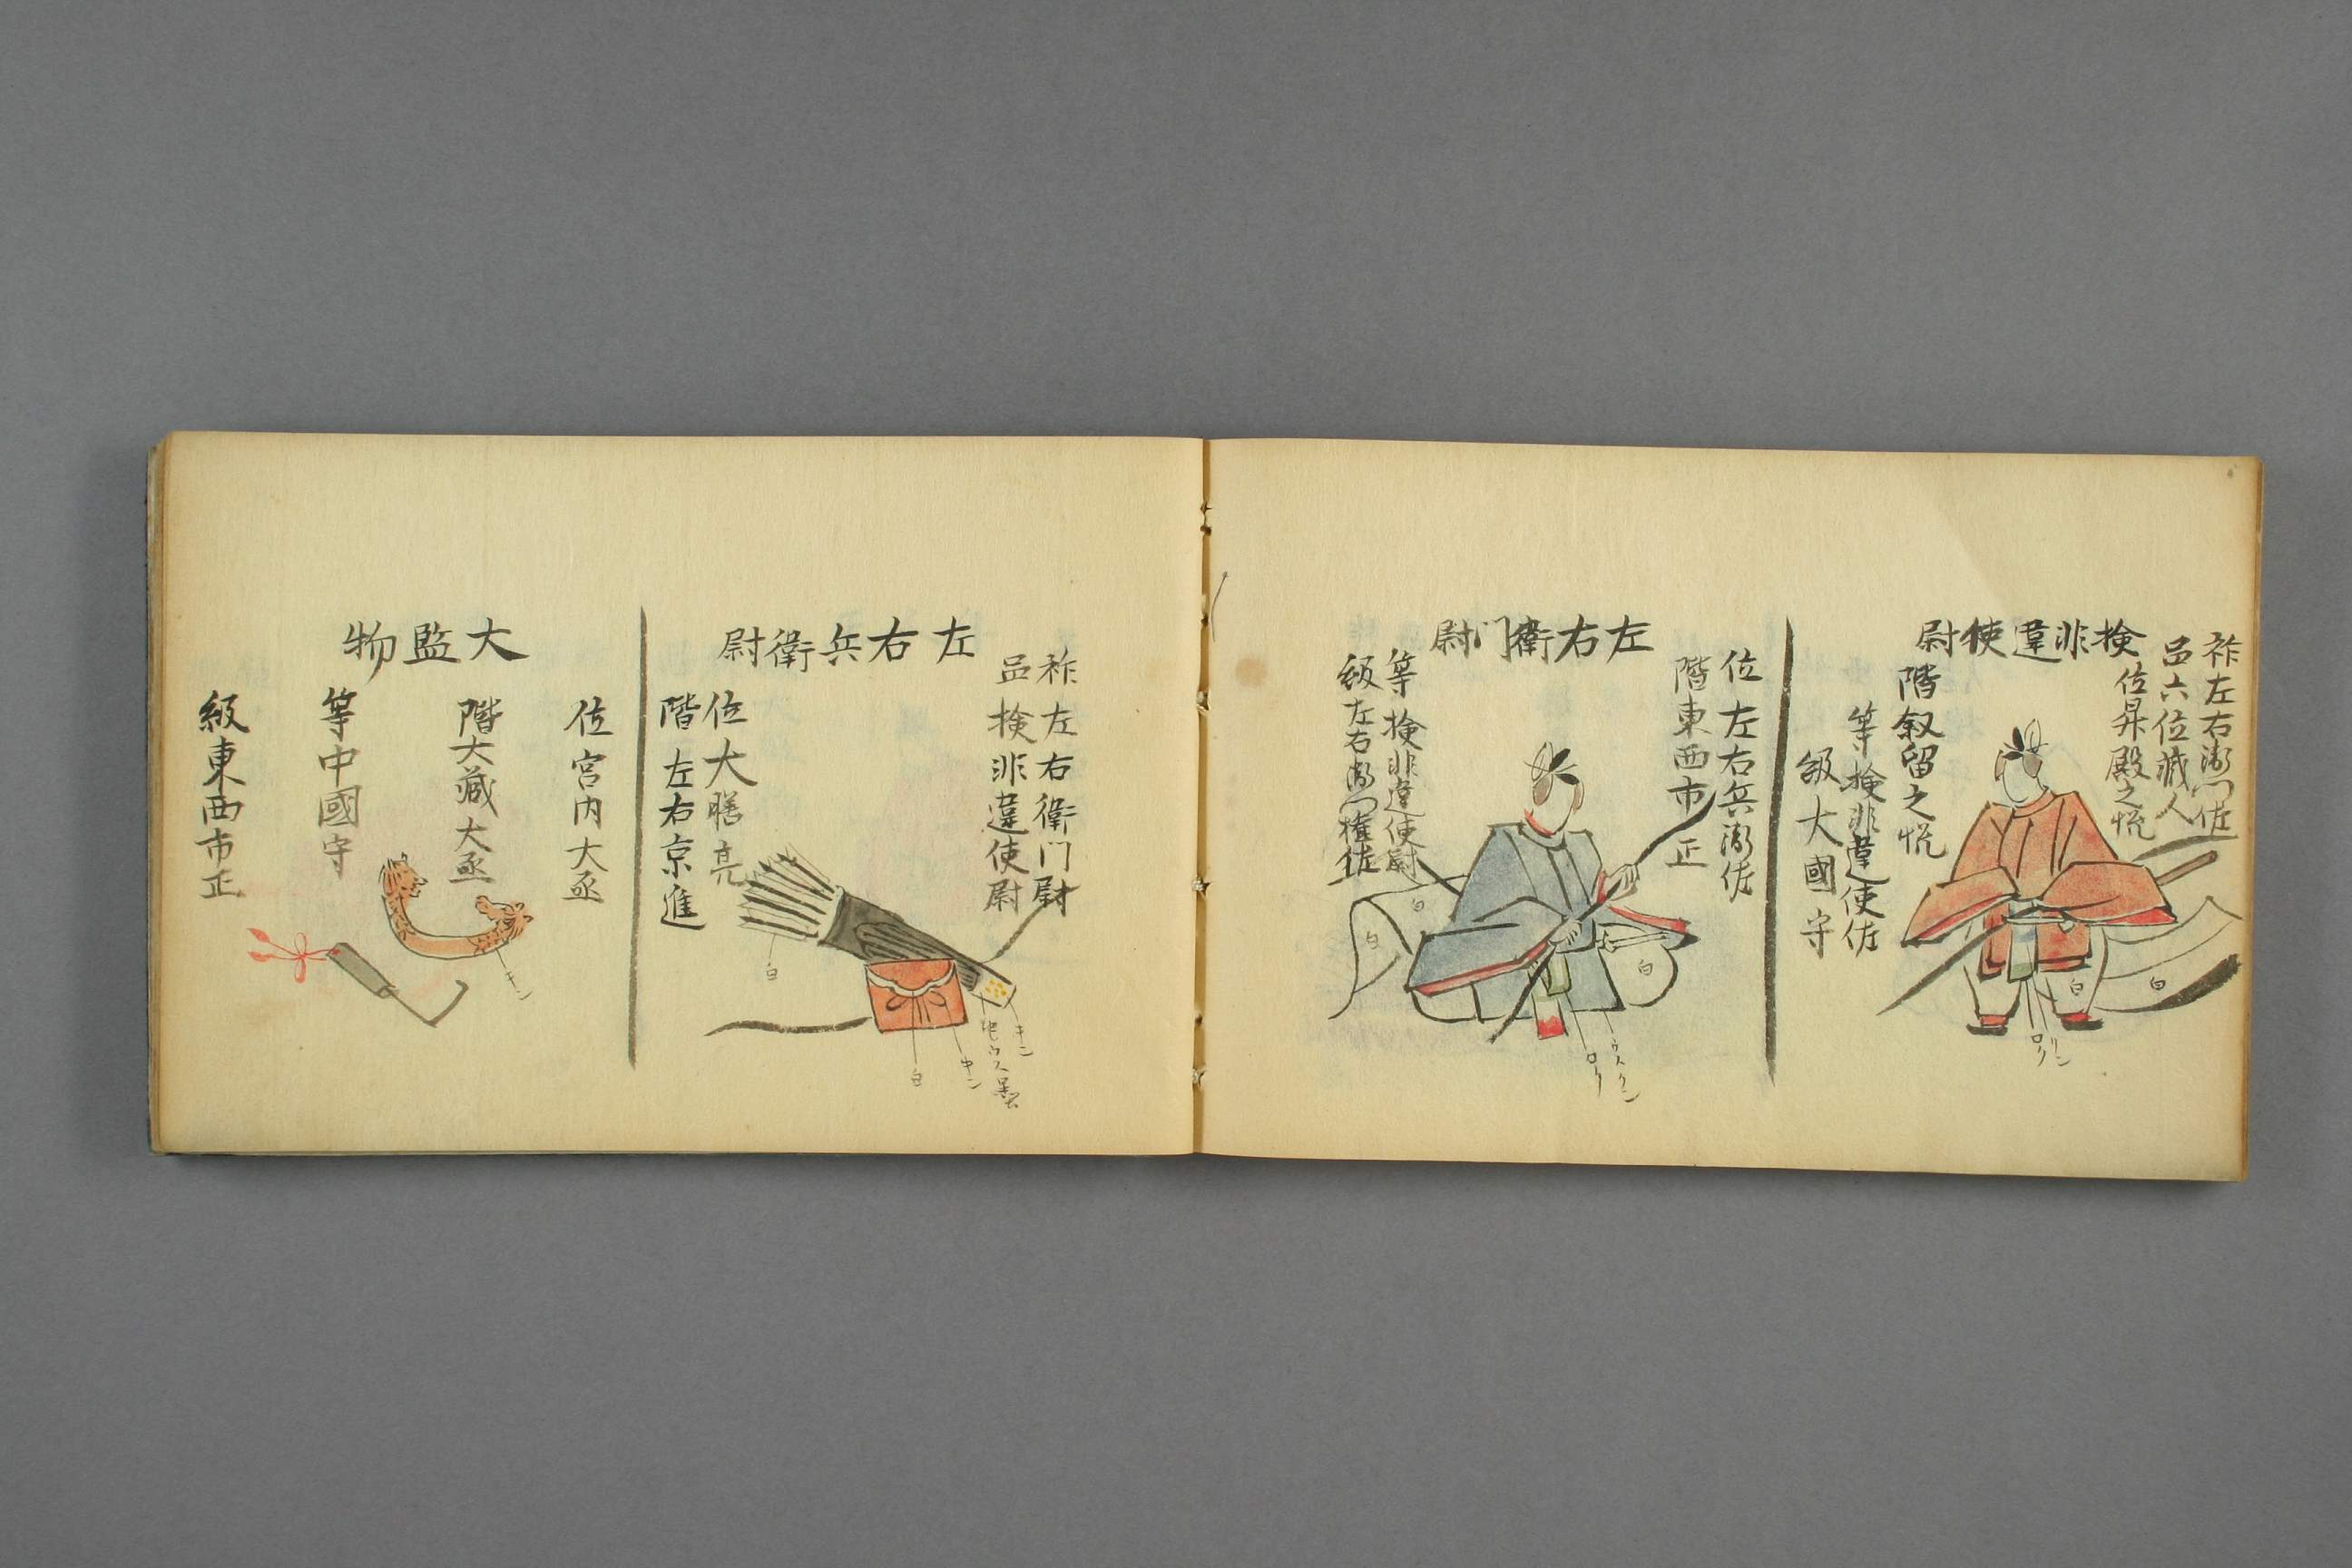 祚左右衛門佐
品六位蔵人
位昇殿之
検非違使尉
階叙留之
等検非違使佐
級大國守
白
白
ロク
位左右兵衛佐
階東西市正
左右衛門尉
等検非違使尉
級左右衛門権佐
白
白
白
ロク
祚左右衛門尉
品検非違使尉
左右兵衛尉
位大膳亮
階左右京進
白
白
キン
キン
大監物
位宮内大丞
階大藏大丞
等中國守
級東西市正
キン